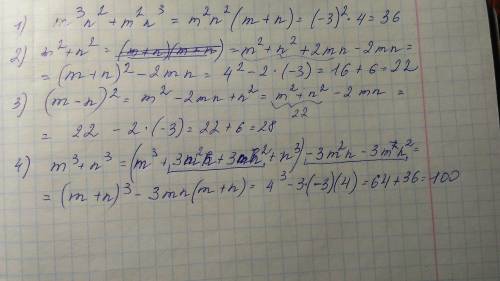 1) m³n² + m²n³ = m²n²(m+n) = (-3)²·4 = 36
2) m²+n² = = m²+n²+2mn-2mn =
= (m+n)²-2mn = 4²-2·(-3) = 16+6 = 22
3) (m-n)² = m²-2mn+n² = m²+n²-2mn =
22
= 22-2·(-3) = 22+6 = 28
4) m³+n³ = (m³+3m²n+3mn²+n³)-3m²n-3mn² =
= (m+n)³-3mn(m+n) = 4³-3·(-3)(4) = 64+36 = 100